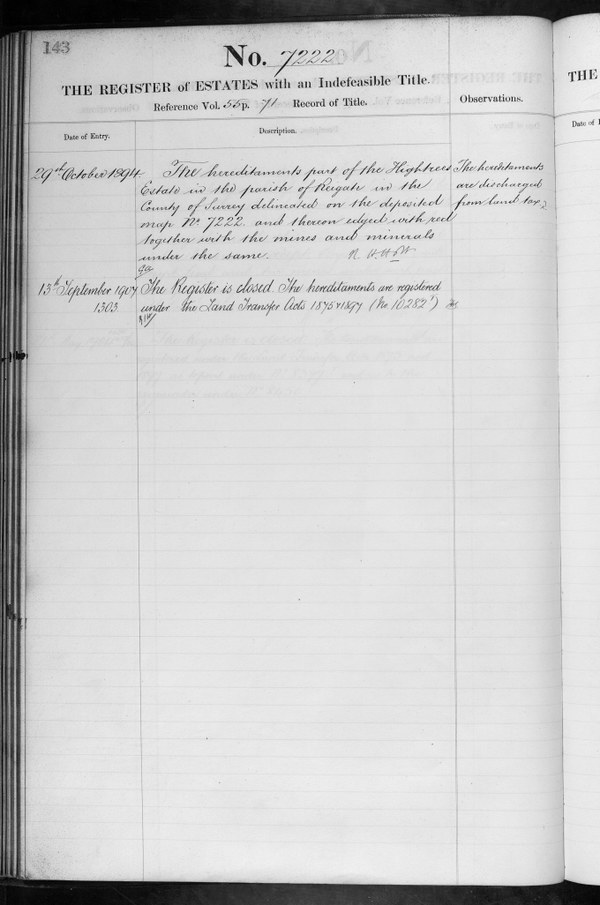 143
No. 7222
THE REGISTER of ESTATES with an Indefeasible Title.
Reference Vol. 55 p. 71 Record of Title.
Observations.
Date of Entry.
Description.
29th October 1894
The hereditaments part of the Hightrees
Estate in the parish of Reigate in the
County of Surrey delineated on the deposited
map No. 7222 and thereon edged with red
together with the mines and minerals
under the same.
The hereditaments
are discharged
from land tax
13th September 1907
1303
The Register is closed. The hereditaments are registered
under the Land Transfer Acts 1875 & 1897 (No. 10282)
THE
Date of